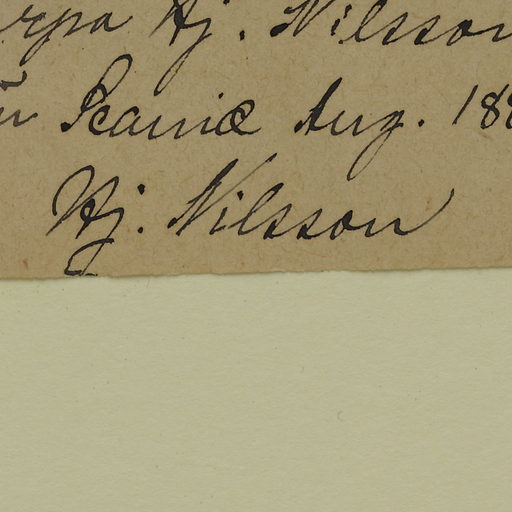 Hj. Nilsson
Scaniæ Aug. 188
Hj. Nilsson